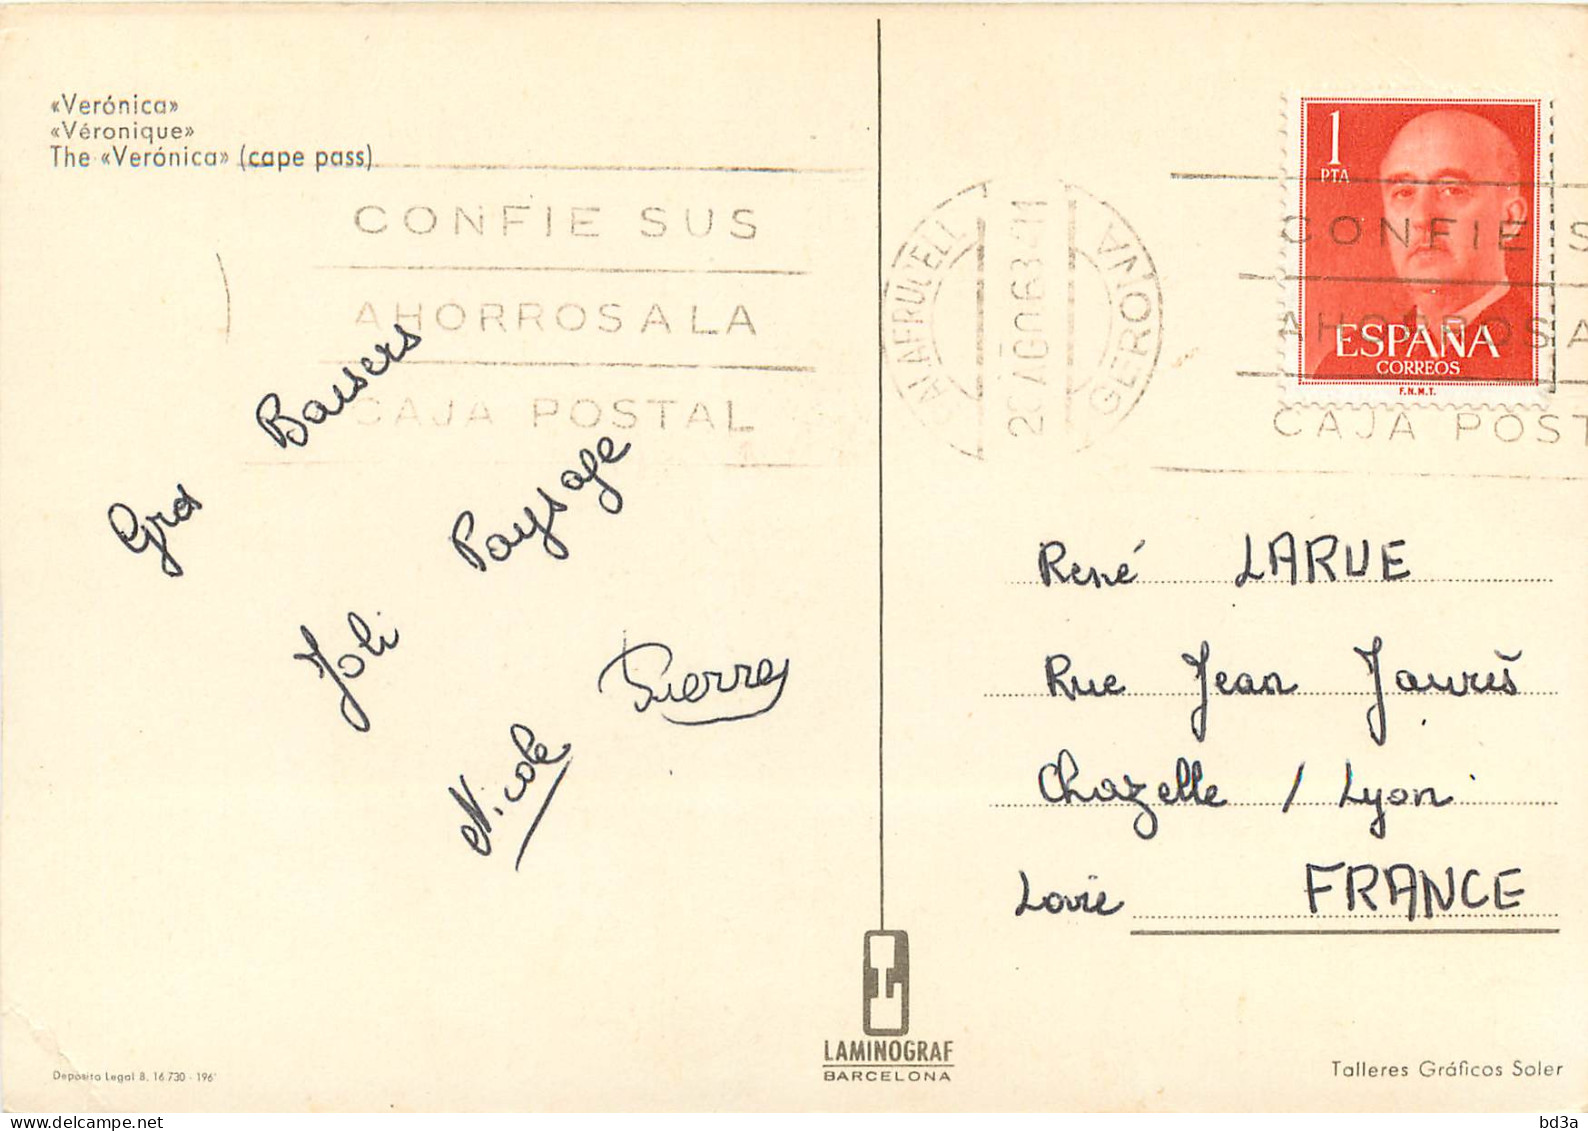 «Verónica»
«Véronique»
The «Verónica» (cape pass)
CONFIE SUS
AHORROS A LA
CAJA POSTAL
Gros Baisers
Joli Paysage
Nicole
Pierre
GERONA
AGO 63
1
PTA
ESPAÑA
CORREOS
F.N.M.T.
CONFIE S
AHORROS A
CAJA POST
René LARUE
Rue Jean Jaurès
Chazelle / Lyon
Loire FRANCE
LAMINOGRAF
BARCELONA
Depósito Legal B. 16.730 - 196
Talleres Gráficos Soler
delcampe.net
bd3a